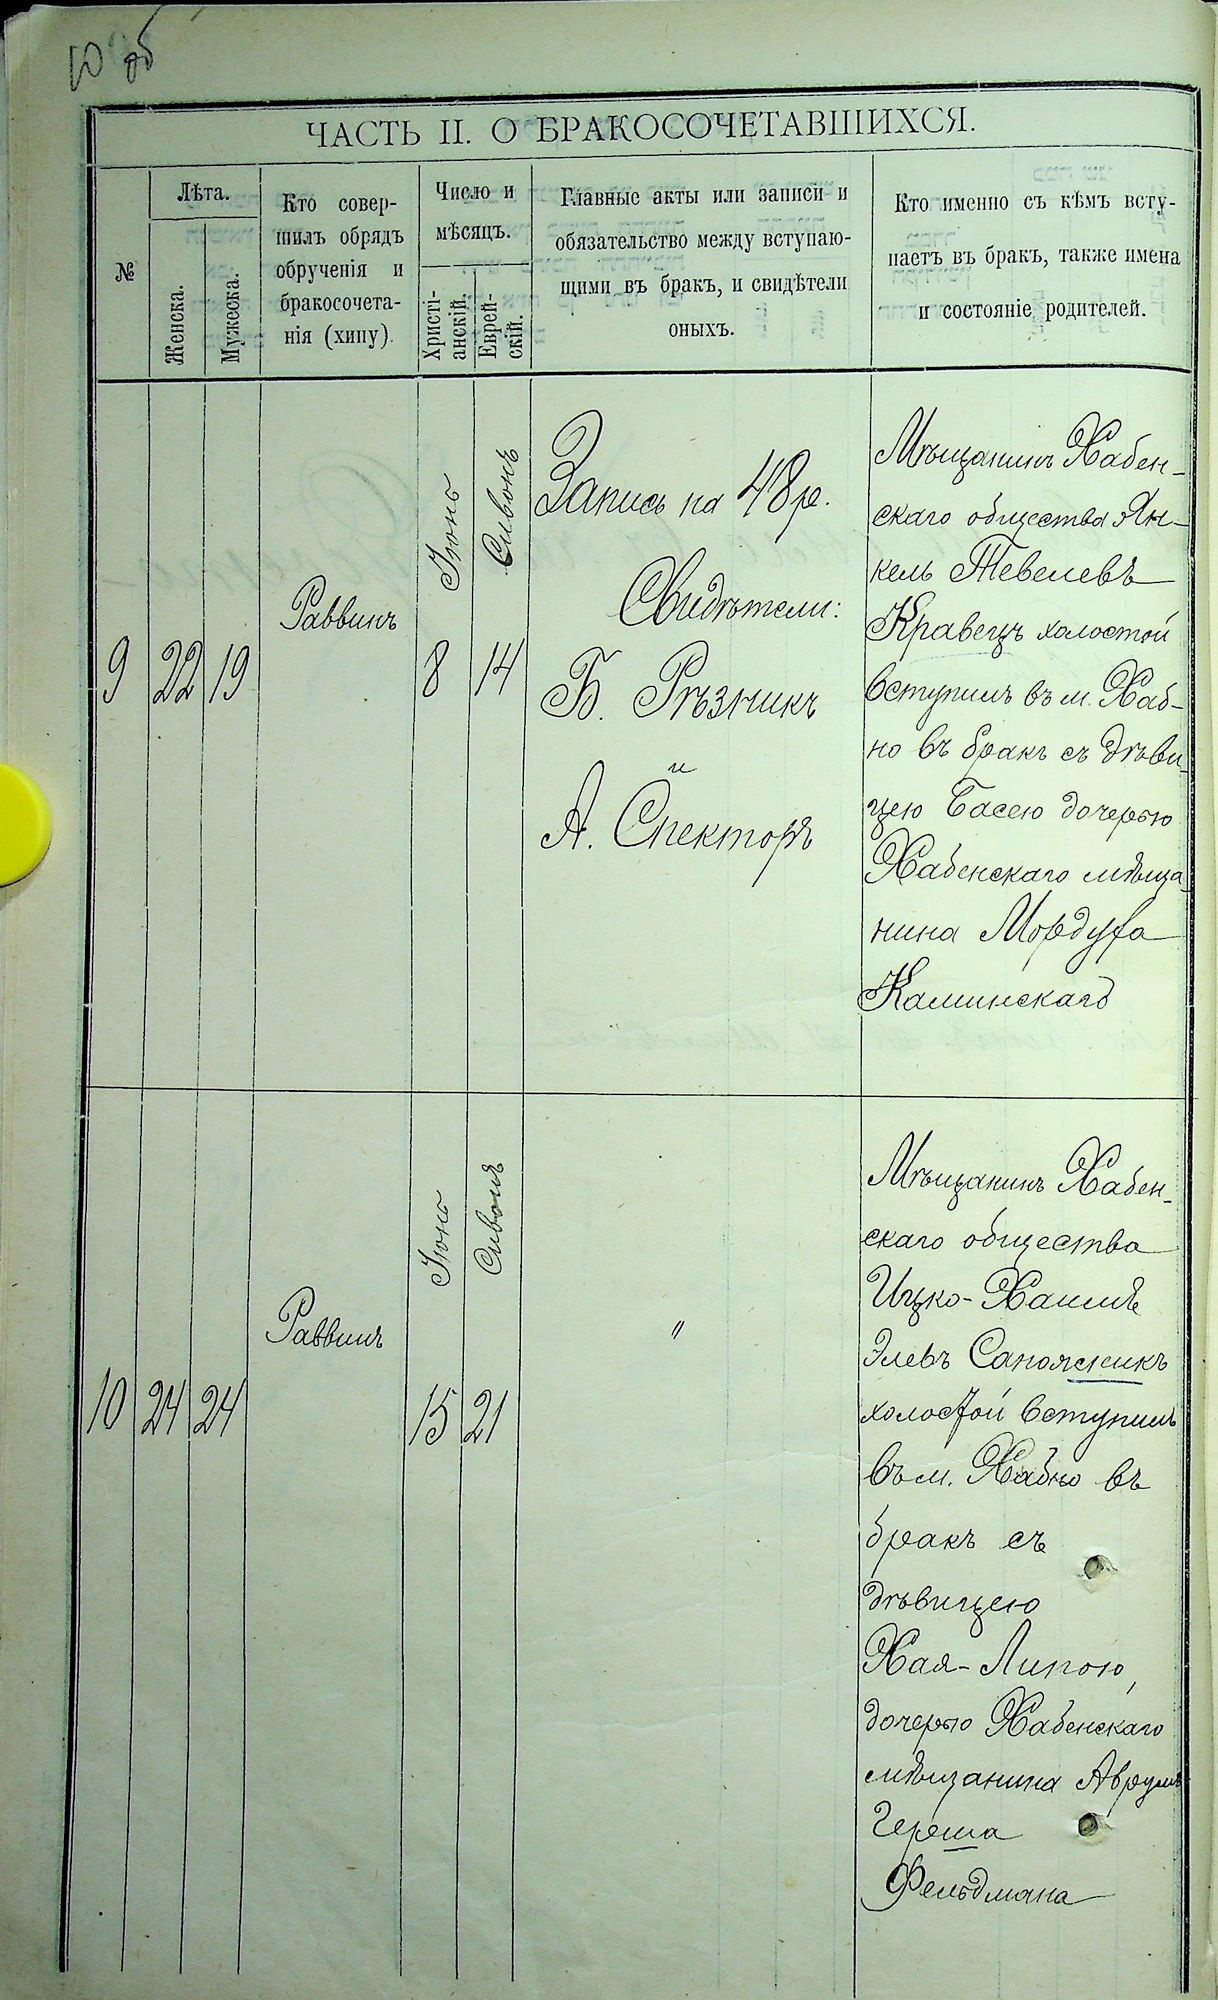 10 об
ЧАСТЬ II. О БРАКОСОЧЕТАВШИХСЯ.
№
Лѣта.
Женска.
Мужеска.
Кто совер-
шилъ обрядъ
обрученія и
бракосочета-
нія (хипу).
Число и
мѣсяцъ.
Христі-
анскій.
Еврей-
скій.
Главные акты или записи и
обязательство между вступаю-
щими въ бракъ, и свидѣтели
оныхъ.
Кто именно съ кѣмъ всту-
паетъ въ бракъ, также имена
и состояніе родителей.
9
22
19
Раввинъ
Іюнь
8
Сивонъ
14
Запись на 48 р.
Свидѣтели:
Б. Рѣзникъ
и
А. Спекторъ
Мѣщанинъ Хабен-
скаго общества Ян-
кель Тевелевъ
Кравецъ холостой
вступилъ въ м. Хаб-
но въ бракъ съ дѣви-
цею Басею дочерью
Хабенскаго мѣща-
нина Мордуха
Каминскаго
10
24
24
Раввинъ
Іюнь
15
Сивонъ
21
"
Мѣщанинъ Хабен-
скаго общества
Ицко-Хаимъ
Элевъ Сапожникъ
холостой вступилъ
въ м. Хабно въ
бракъ съ
дѣвицею
Хая-Липою,
дочерью Хабенскаго
мѣщанина Аврумъ
Герша
Фельдмана